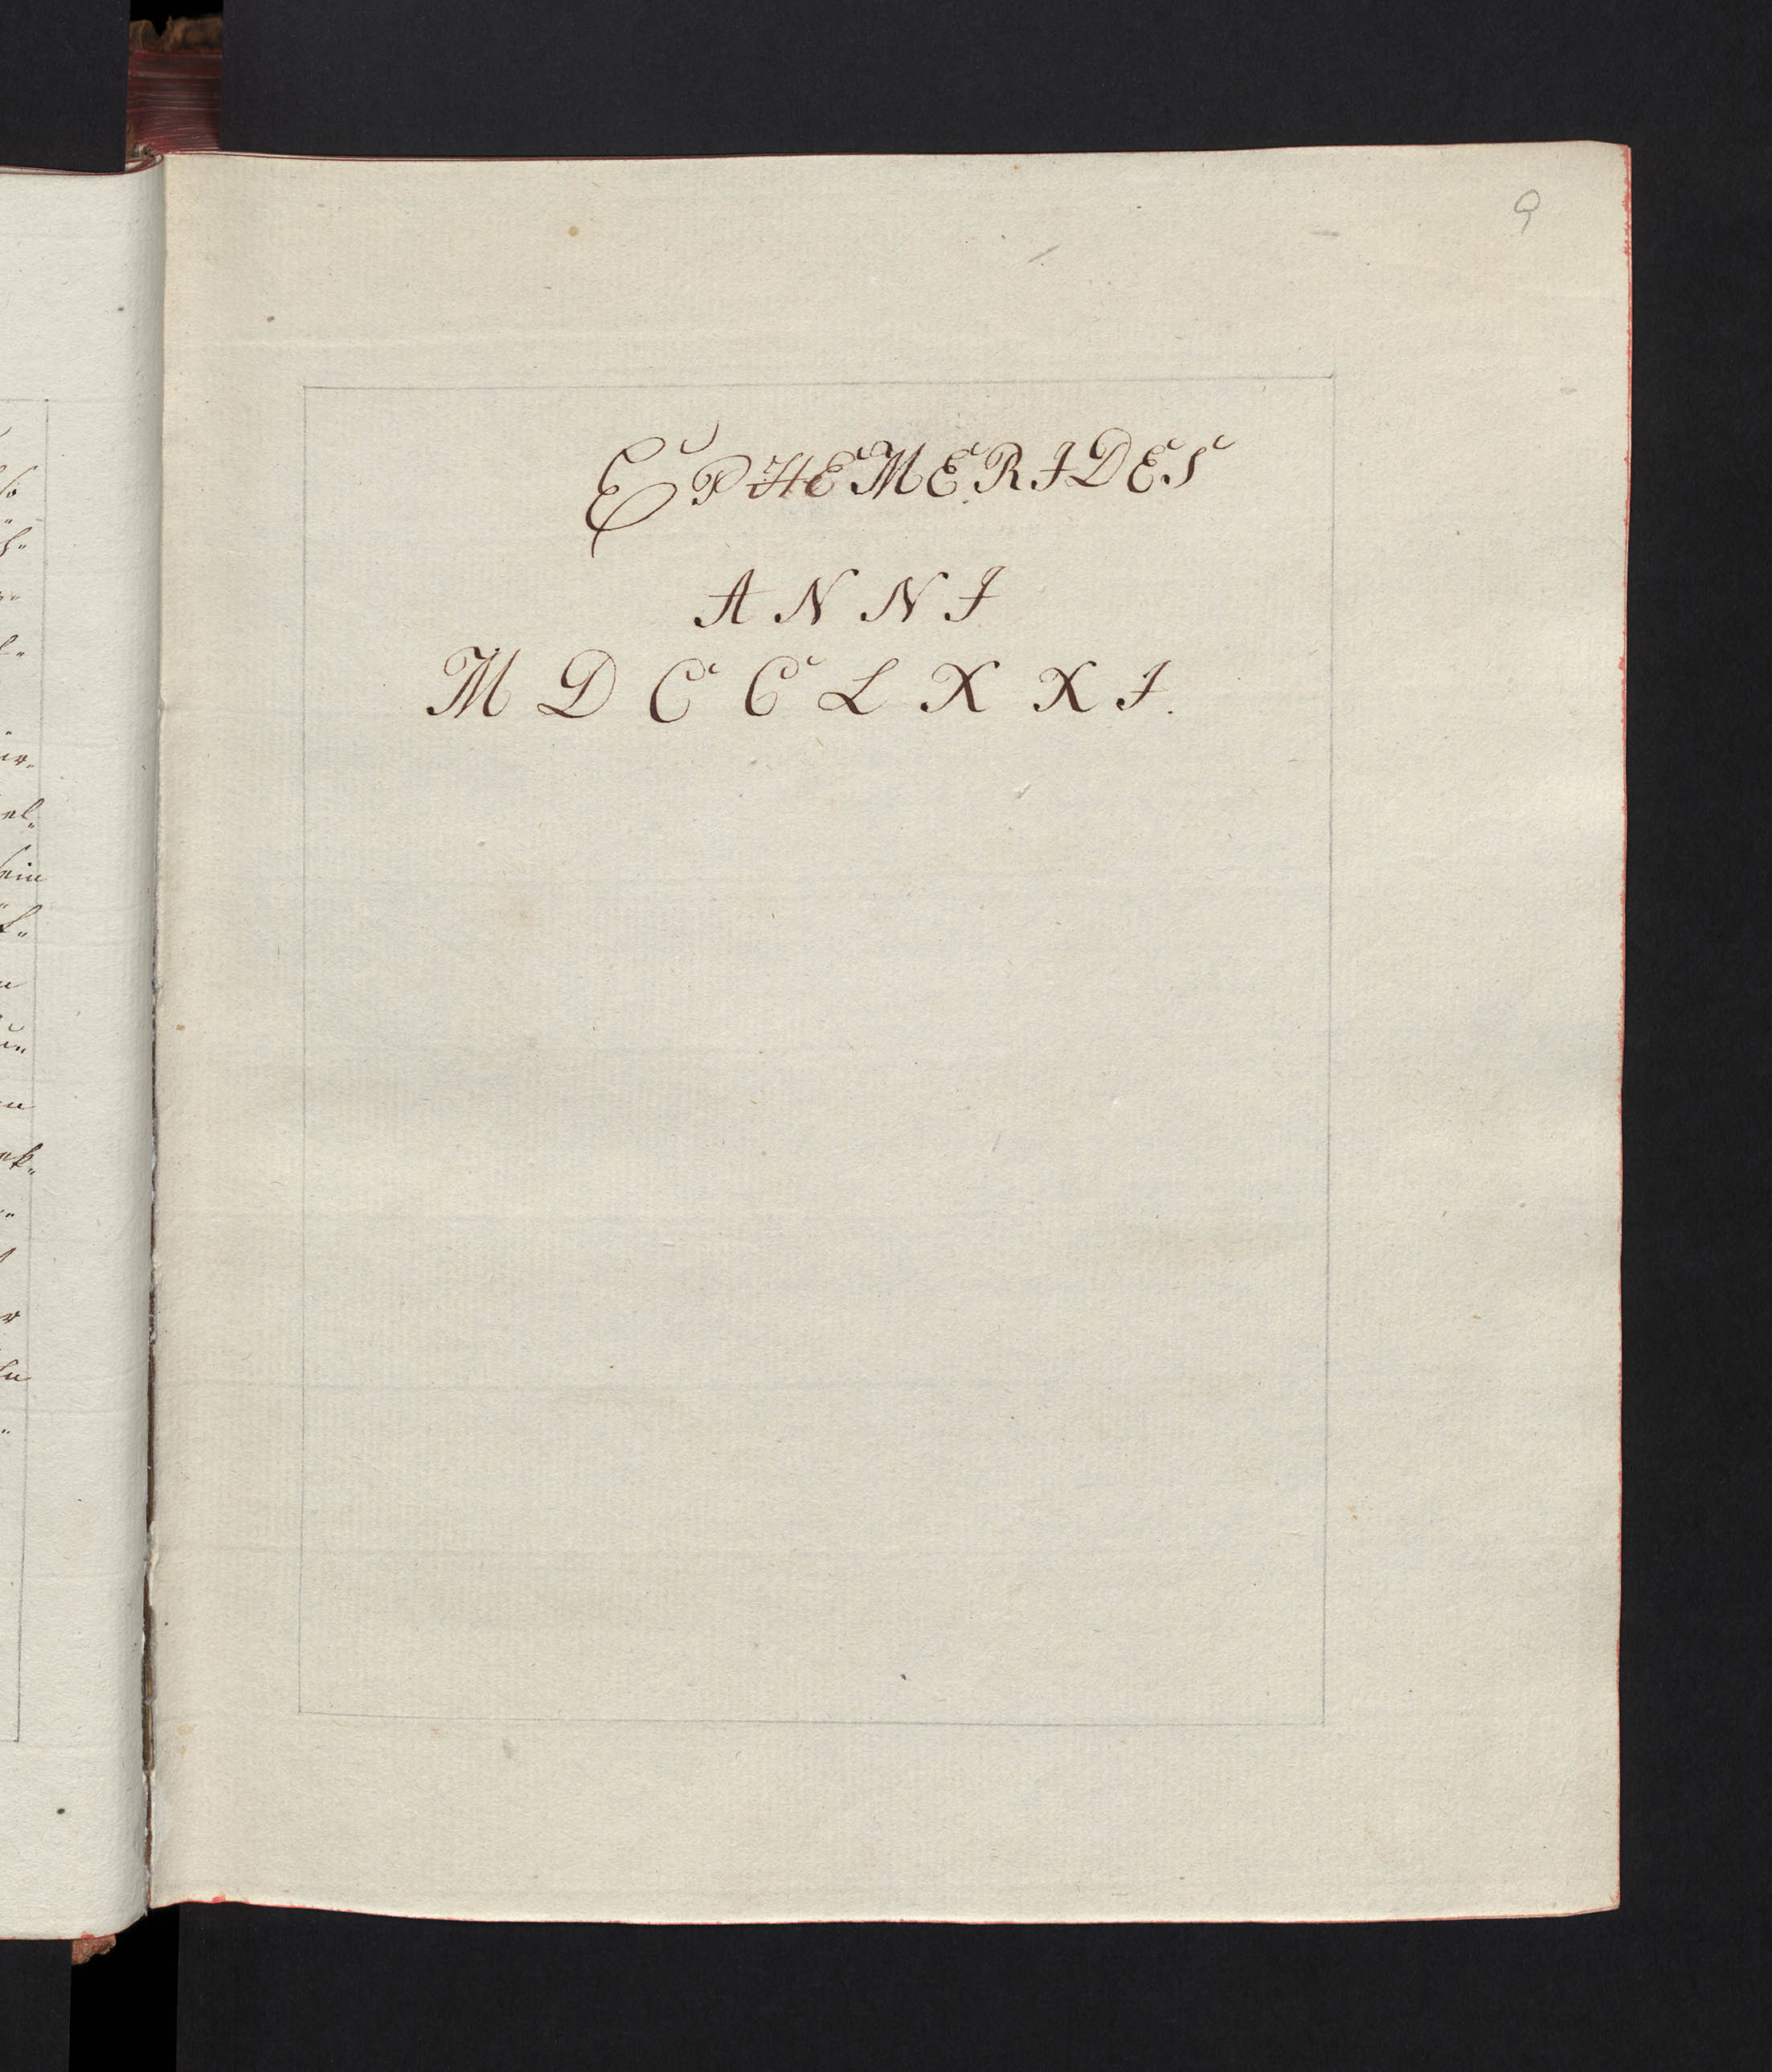 9
EPHEMERIDES
ANNI
MDCCLXXI.